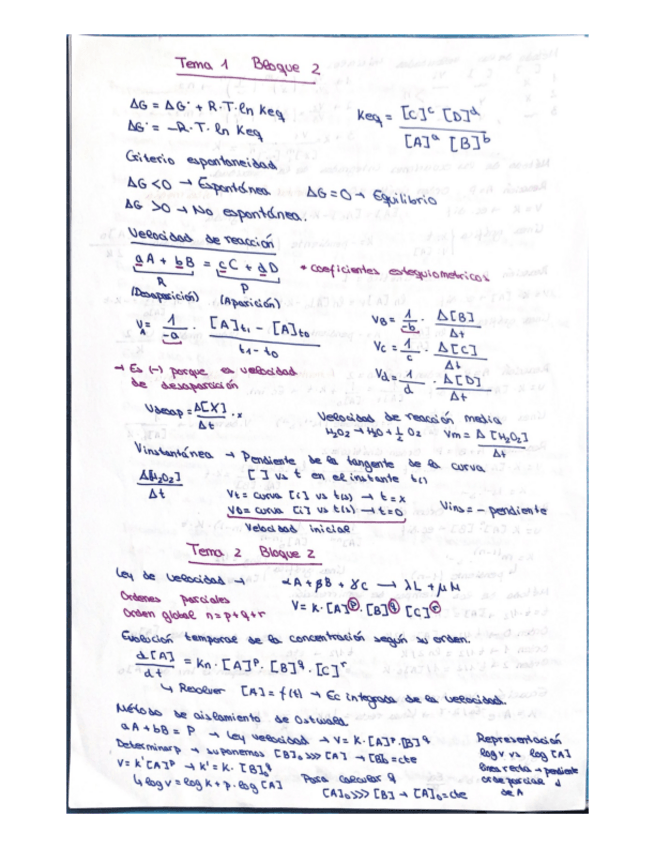 Tema 1 Bloque 2
ΔG = ΔG° + R·T·ln Keq
ΔG° = -R·T· ln Keq
Keq = [C]ᶜ · [D]ᵈ / [A]ᵃ [B]ᵇ
Criterio espontaneidad
ΔG < 0 → Espontánea ΔG = 0 → Equilibrio
ΔG > 0 → No espontánea.
Velocidad de reacción
aA + bB = cC + dD * coeficientes estequiometricos
R P
(Desaparición) (Aparición)
V_A = 1/-a · [A]t₁ - [A]t₀ / t₁ - t₀
V_B = 1/-b · Δ[B]/Δt
V_c = 1/c · Δ[C]/Δt
V_d = 1/d · Δ[D]/Δt
→ Es (-) porque es velocidad
de desaparición
Vdesap = Δ[X]/Δt · x
Velocidad de reacción media
H₂O₂ → H₂O + ½ O₂ Vm = Δ[H₂O₂]/Δt
Vinstantánea → Pendiente de la tangente de la curva
[ ] vs t en el instante t()
Δ[H₂O₂]/Δt
Vt = curva [c] vs t(s) → t = x
V₀ = curva [c] vs t(s) → t = 0
Vins = - pendiente
Velocidad inicial
Tema 2 Bloque 2
Ley de velocidad → αA + βB + γC → λL + μM
Ordenes parciales
V = K · [A]ᵖ · [B]^q [C]ʳ
Orden global n = p + q + r
Evolución temporal de la concentración según su orden.
d[A]/dt = Kn · [A]ᵖ · [B]^q · [C]ʳ
↳ Resolver [A] = f(t) → Ec integrada de la velocidad.
Método de aislamiento de Ostwald
aA + bB = P → Ley velocidad → v = K · [A]ᵖ · [B]^q
Determinar p → suponemos [B]₀ >>> [A] → [B]₀ = cte
V = K'[A]ᵖ → K' = K · [B]₀^q
↳ log v = log K + p · log [A]
Para calcular q
[A]₀ >>> [B] → [A]₀ = cte
Representación
log v vs log [A]
línea recta → pendiente
orden parcial
de A